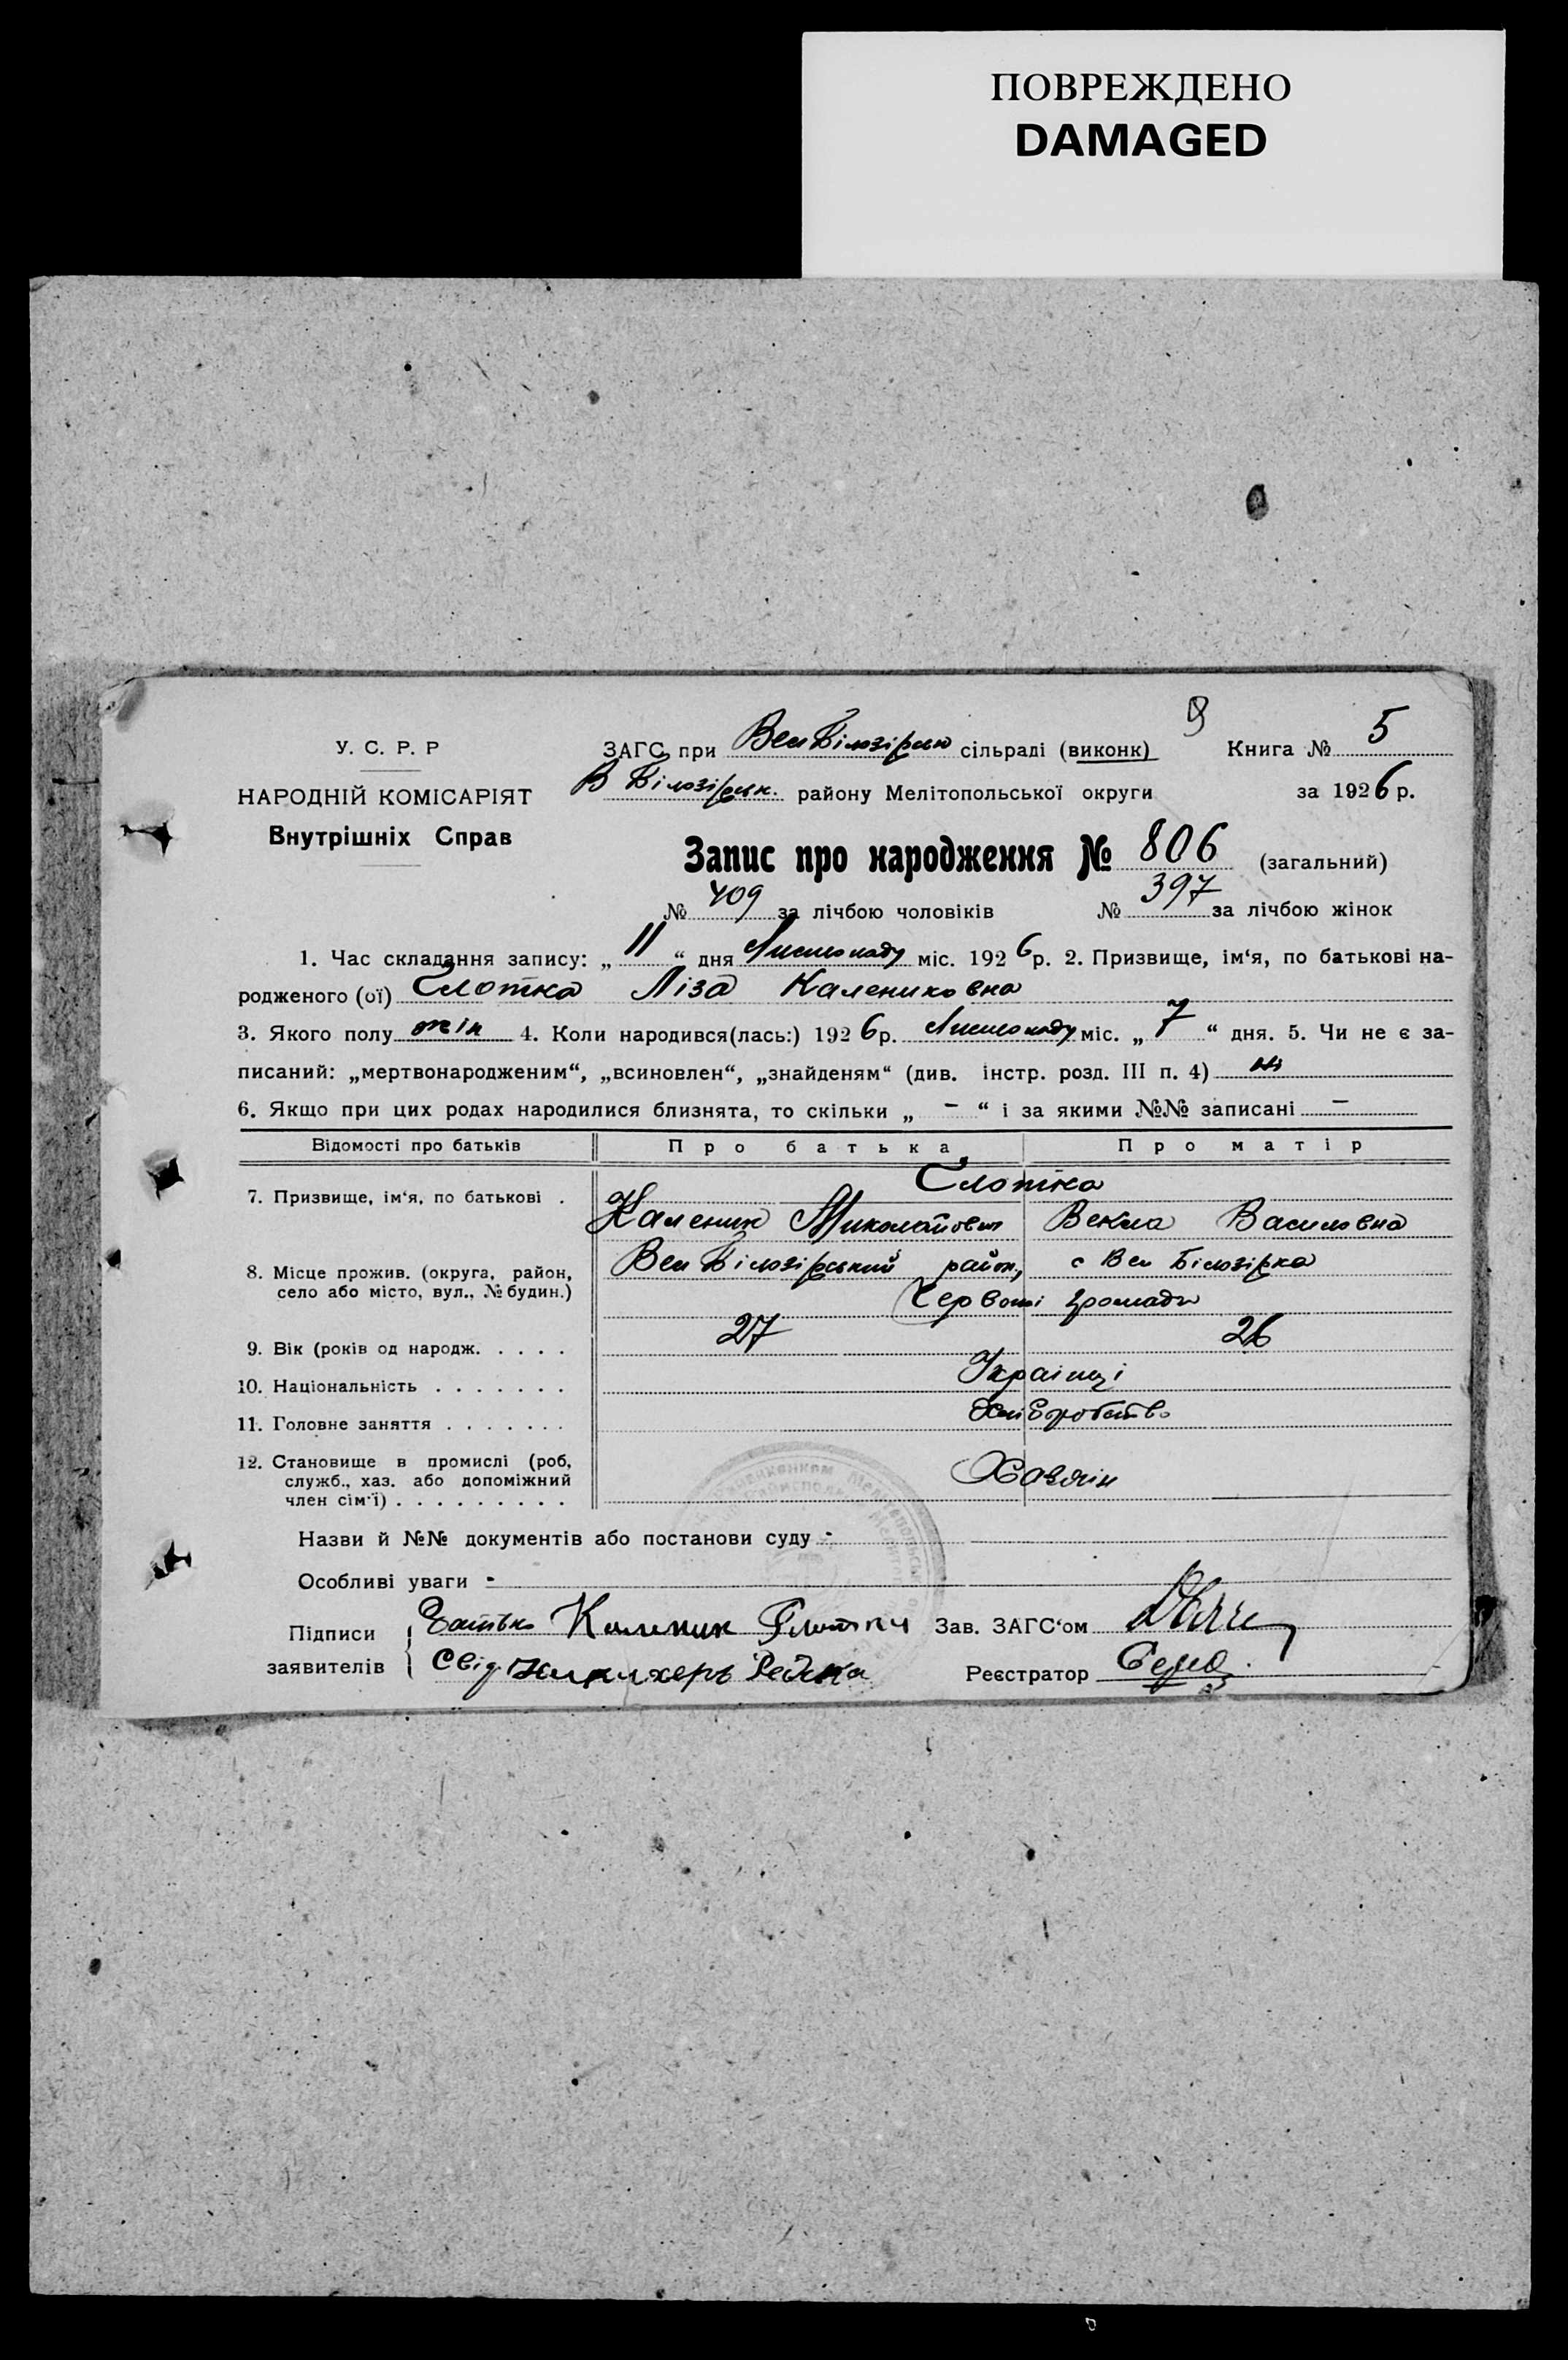 ПОВРЕЖДЕНО
DAMAGED
У. С. Р. Р
НАРОДНІЙ КОМІСАРІЯТ
Внутрішніх Справ
ЗАГС при Вел Білозірськ сільраді (виконк)
Книга № 5
В Білозірськ. району Мелітопольської округи
за 1926 р.
Запис про народження № 806 (загальний)
№ 409 за лічбою чоловіків № 397 за лічбою жінок
1. Час складання запису: „ 11 “ дня Листопаду міс. 1926 р. 2. Призвище, ім‘я, по батькові на-
родженого (ої) Глотка Ліза Калениковна
3. Якого полу жін 4. Коли народився(лась:) 1926 р. Листопаду міс. „ 7 “ дня. 5. Чи не є за-
писаний: „мертвонародженим“, „всиновлен“, „знайденям“ (див. інстр. розд. III п. 4) ні
6. Якщо при цих родах народилися близнята, то скільки „ – “ і за якими №№ записані –
Відомості про батьків Про батька Про матір
7. Призвище, ім‘я, по батькові . Глотка
Каленик Миколайович Векла Василовна
8. Місце прожив. (округа, район,
село або місто, вул., № будин.)
Вел Білозірський район, с Вел Білозірка
Червоні громади
9. Вік (років од народж. . . . . 27 26
10. Національність . . . . . . . Українці
11. Головне заняття . . . . . . . Хліборобство
12. Становище в промислі (роб,
служб., хаз. або допоміжний
член сім‘ї) . . . . . . . . . Хазяін
Назви й №№ документів або постанови суду -
Особливі уваги -
Підписи
заявителів
Батько Каленик Глотка
Свід
Зав. ЗАГС‘ом
Реєстратор